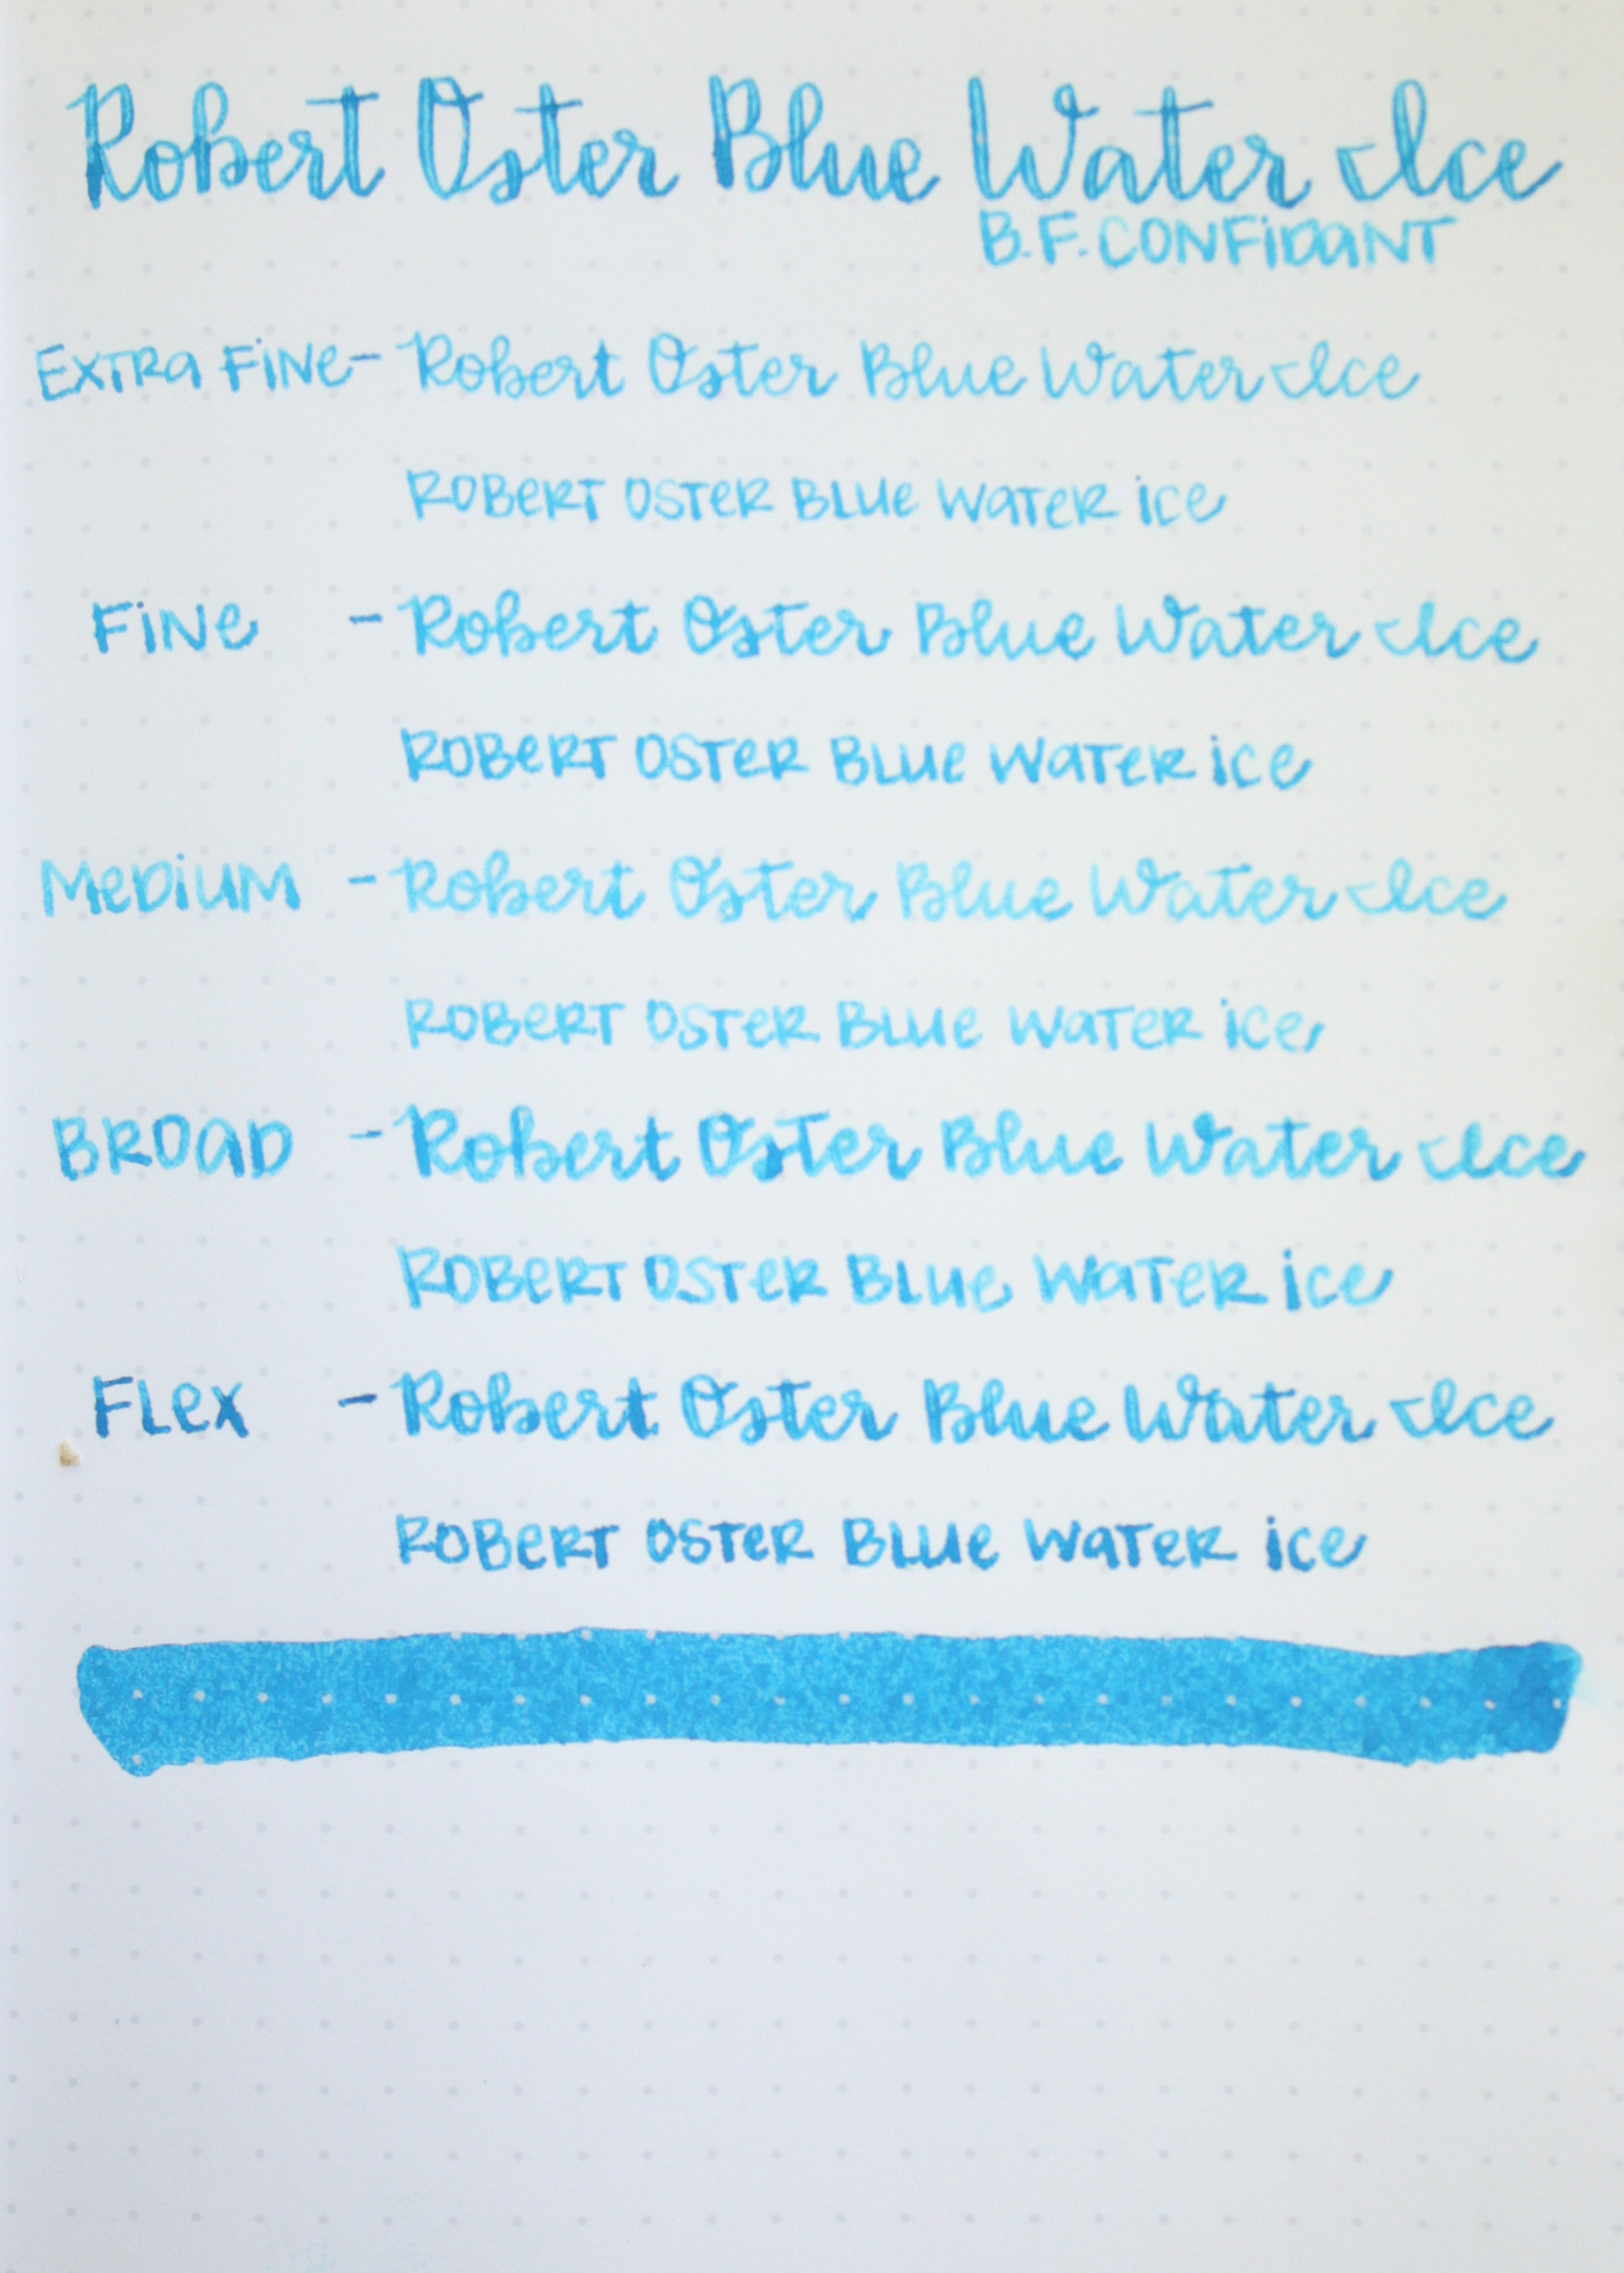 Robert Oster Blue Water Ice
B.F. CONFiDANT
EXTRA FiNe - Robert Oster Blue Water Ice
ROBeRT OSTeR BLUe WaTeR ice
FiNe - Robert Oster Blue Water Ice
ROBeRT OSTeR BLUe WaTeR ice
MeDiUM - Robert Oster Blue Water Ice
ROBeRT OSTeR BLUe WaTeR ice
BROaD - Robert Oster Blue Water Ice
ROBeRT OSTeR BLUe WaTeR ice
FLeX - Robert Oster Blue Water Ice
ROBeRT OSTeR BLUe WaTeR ice